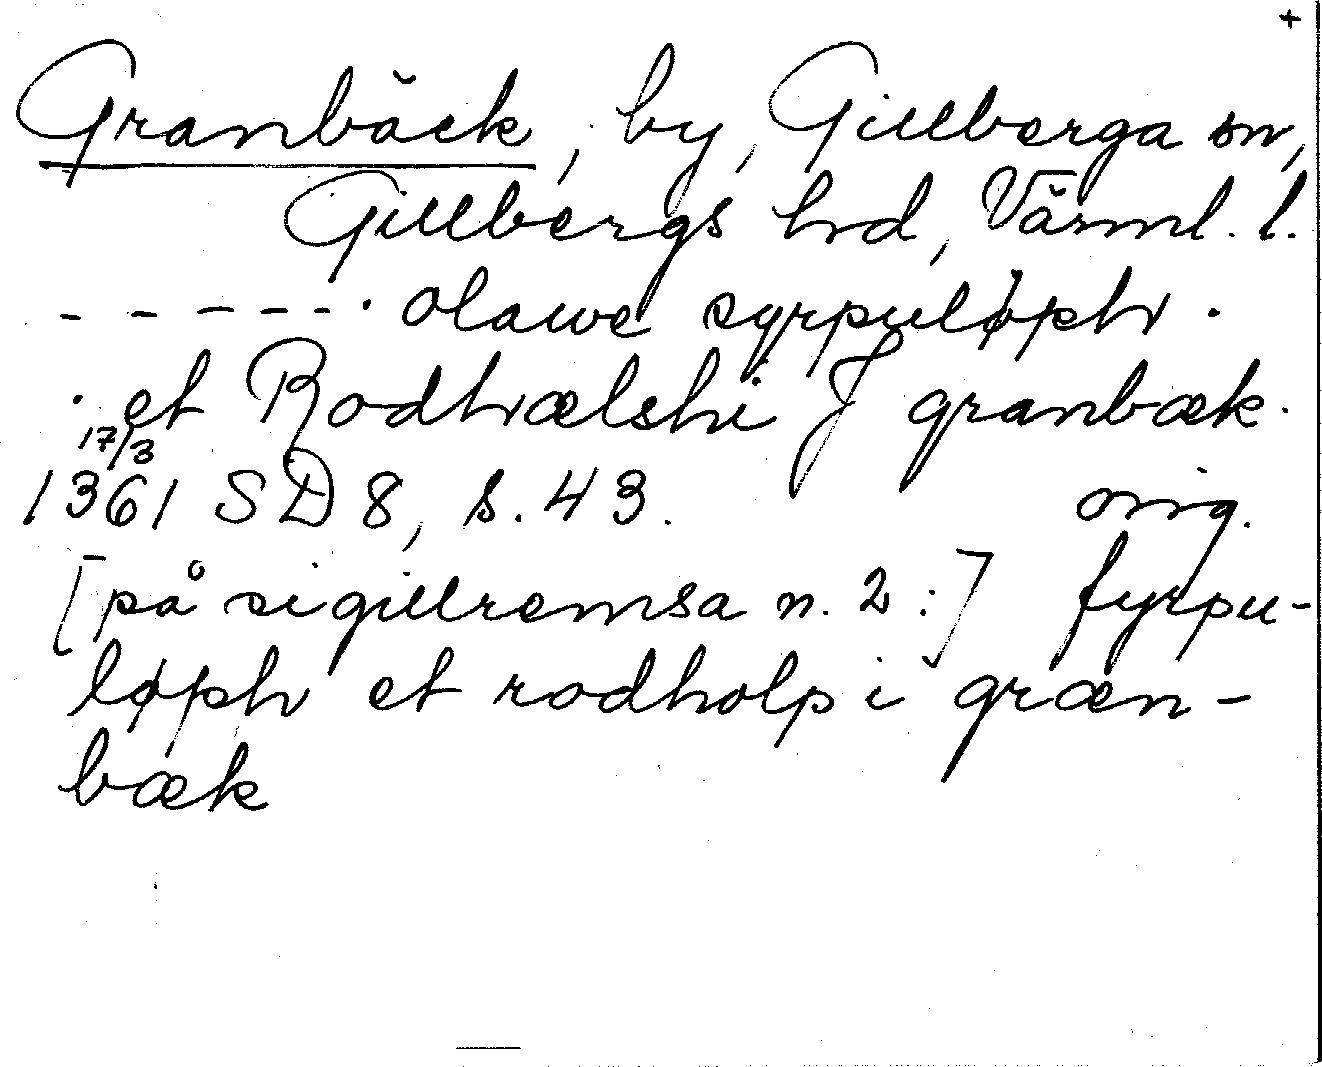 +
Granbäck, by, Gillberga sn,
Gillbergs hrd, Värml. l.
- - - - - · olawe syrpuløph ·
· et Rodhælshi J granbæk.
17/3
1361 SD 8, s. 43. orig.
[på sigillremsa n. 2 :] fyrpu-
løph et rodholp i græn-
bæk